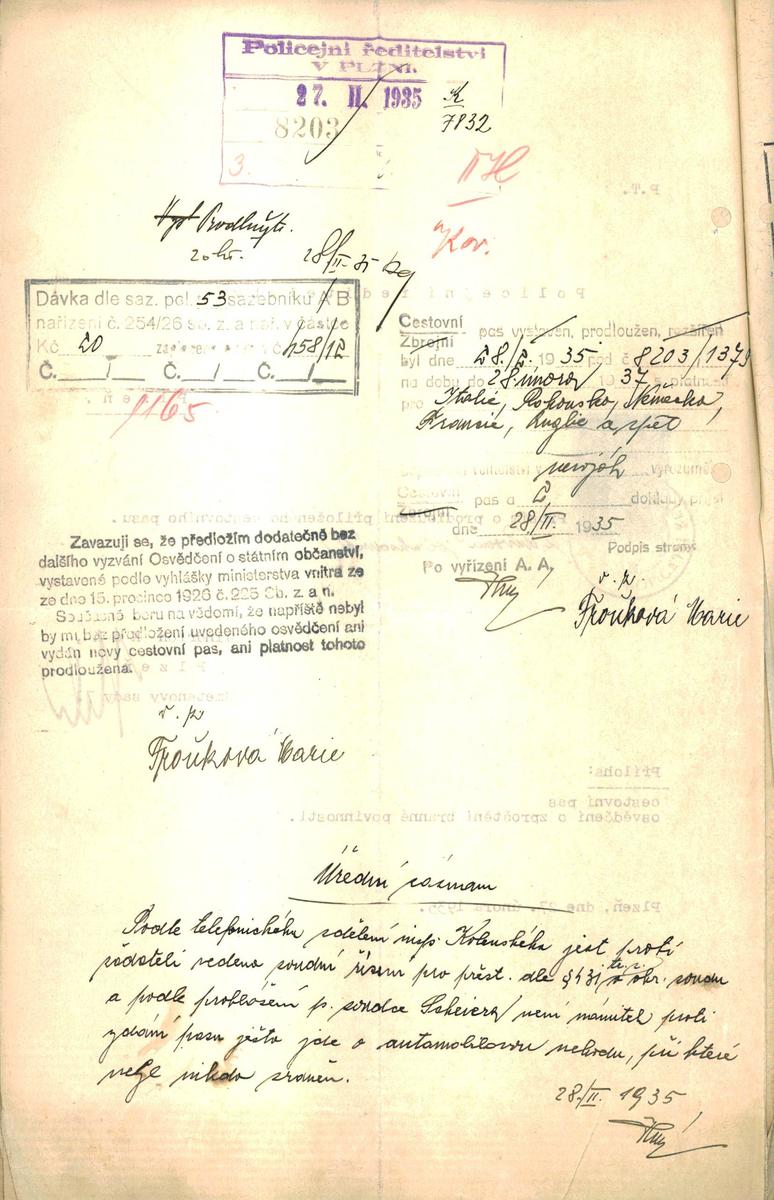 Policejní ředitelství
V PLZNI.
27. II. 1935
8203
K
7832
3.
Prodlužti.
20 kč.
28/II-35
Kov.
Dávka dle saz. pol. 53 sazebníku A B
nařízení č. 254/26 sb. z. a nař. v částce
Kč 20 č 158/12
Č. / / Č. / / Č. / /
1165
Cestovní
Zbrojní
pas vystaven, prodloužen, rozšířen
byl dne 28./2. 1935 pod č 8203/1379
na dobu do 28. února 1937 a platnost
pro Italii, Rakousko, Německo,
Francii, Anglii a zpět
vyrozuměn
Cestovní
Zbrojní
pas a 2 doklady přijal
dne 28/II. 1935
Podpis strany
Po vyřízení A. A.
v. z.
Trouková Marie
Zavazuji se, že předložím dodatečně bez
dalšího vyzvání Osvědčení o státním občanství,
vystavené podle vyhlášky ministerstva vnitra ze
ze dne 15. prosince 1926 č. 225 Sb. z. a n.
Současně beru na vědomí, že napříště nebyl
by mi bez předložení uvedeného osvědčení ani
vydán nový cestovní pas, ani platnost tohoto
prodloužena.
v. z.
Trouková Marie
P.T.
Příloha:
cestovní pas
osvědčení o zproštění branné povinnosti.
Plzeň, dne 27. února 1935.
Úřední záznam
Podle telefonického sdělení insp. Kolenského jest proti
žadateli vedeno soudní řízení pro přest. dle § 431 tr. z. u okr. soudu
a podle prohlášení p. soudce Scheiera není námitek proti
vydání pasu ježto jde o automobilovou nehodu, při které
nebyl nikdo zraněn.
28/II. 1935